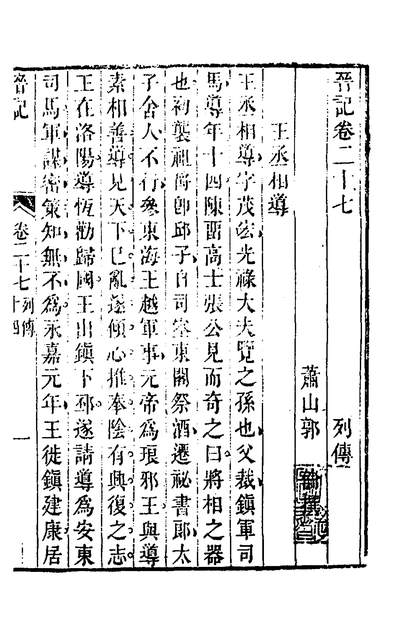 晉記卷二十七　列傳
蕭山郭
王丞相導
王丞相導字茂宏光祿大夫覽之孫也父裁鎮軍司
馬導年十四陳畱高士張公見而奇之曰將相之器
也初襲祖爵卽邱子自司空東閣祭酒遷祕書郎太
子舍人不行參東海王越軍事元帝爲琅邪王與導
素相善導見天下已亂遂傾心推奉陰有興復之志
王在洛陽導恆勸歸國王出鎮下邳遂請導爲安東
司馬軍謀密策知無不爲永嘉元年王徙鎮建康居
晉記　卷二十七　列傳十四　一